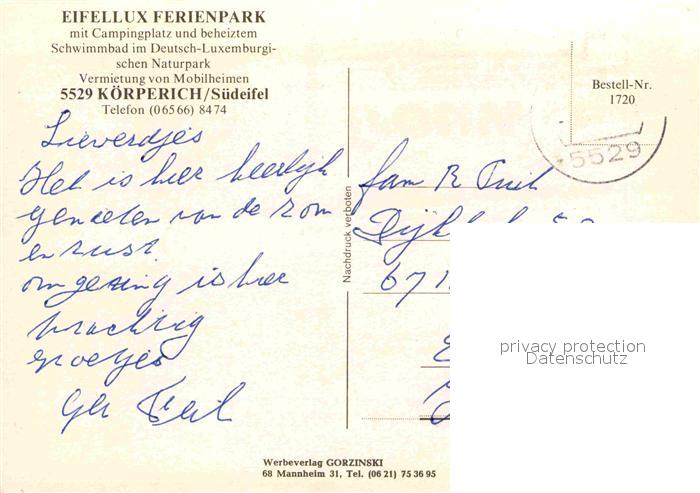 EIFELLUX FERIENPARK
mit Campingplatz und beheiztem
Schwimmbad im Deutsch-Luxemburgi-
schen Naturpark
Vermietung von Mobilheimen
5529 KÖRPERICH/Südeifel
Telefon (06566) 8474
Lieverdjes
Het is hier heerlijk
genieten van de zon
en rust.
omgeving is hier
prachtig
groetjes
Nachdruck verboten
Bestell-Nr.
1720
5529
fam R
671
privacy protection
Datenschutz
Werbeverlag GORZINSKI
68 Mannheim 31, Tel. (06 21) 75 36 95